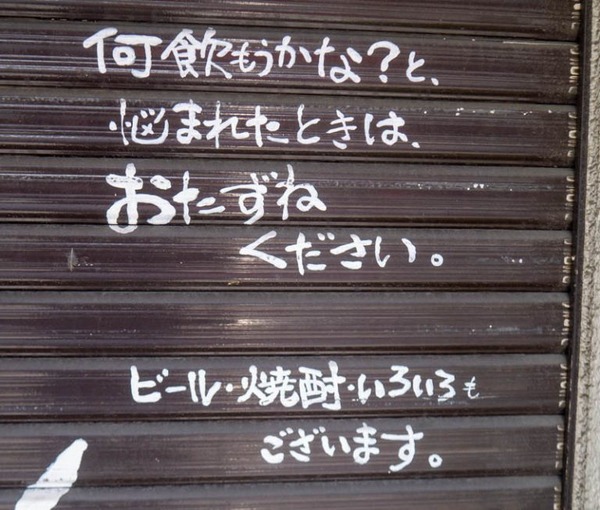 何飲もうかな？と、
悩まれたときは、
おたずね
ください。
ビール・焼酎・いろいろも
ございます。